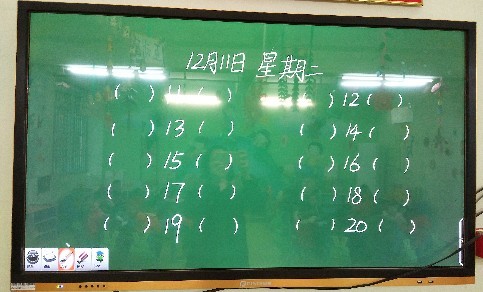 12月11日 星期二
( ) 11 ( ) ( ) 12 ( )
( ) 13 ( ) ( ) 14 ( )
( ) 15 ( ) ( ) 16 ( )
( ) 17 ( ) ( ) 18 ( )
( ) 19 ( ) ( ) 20 ( )